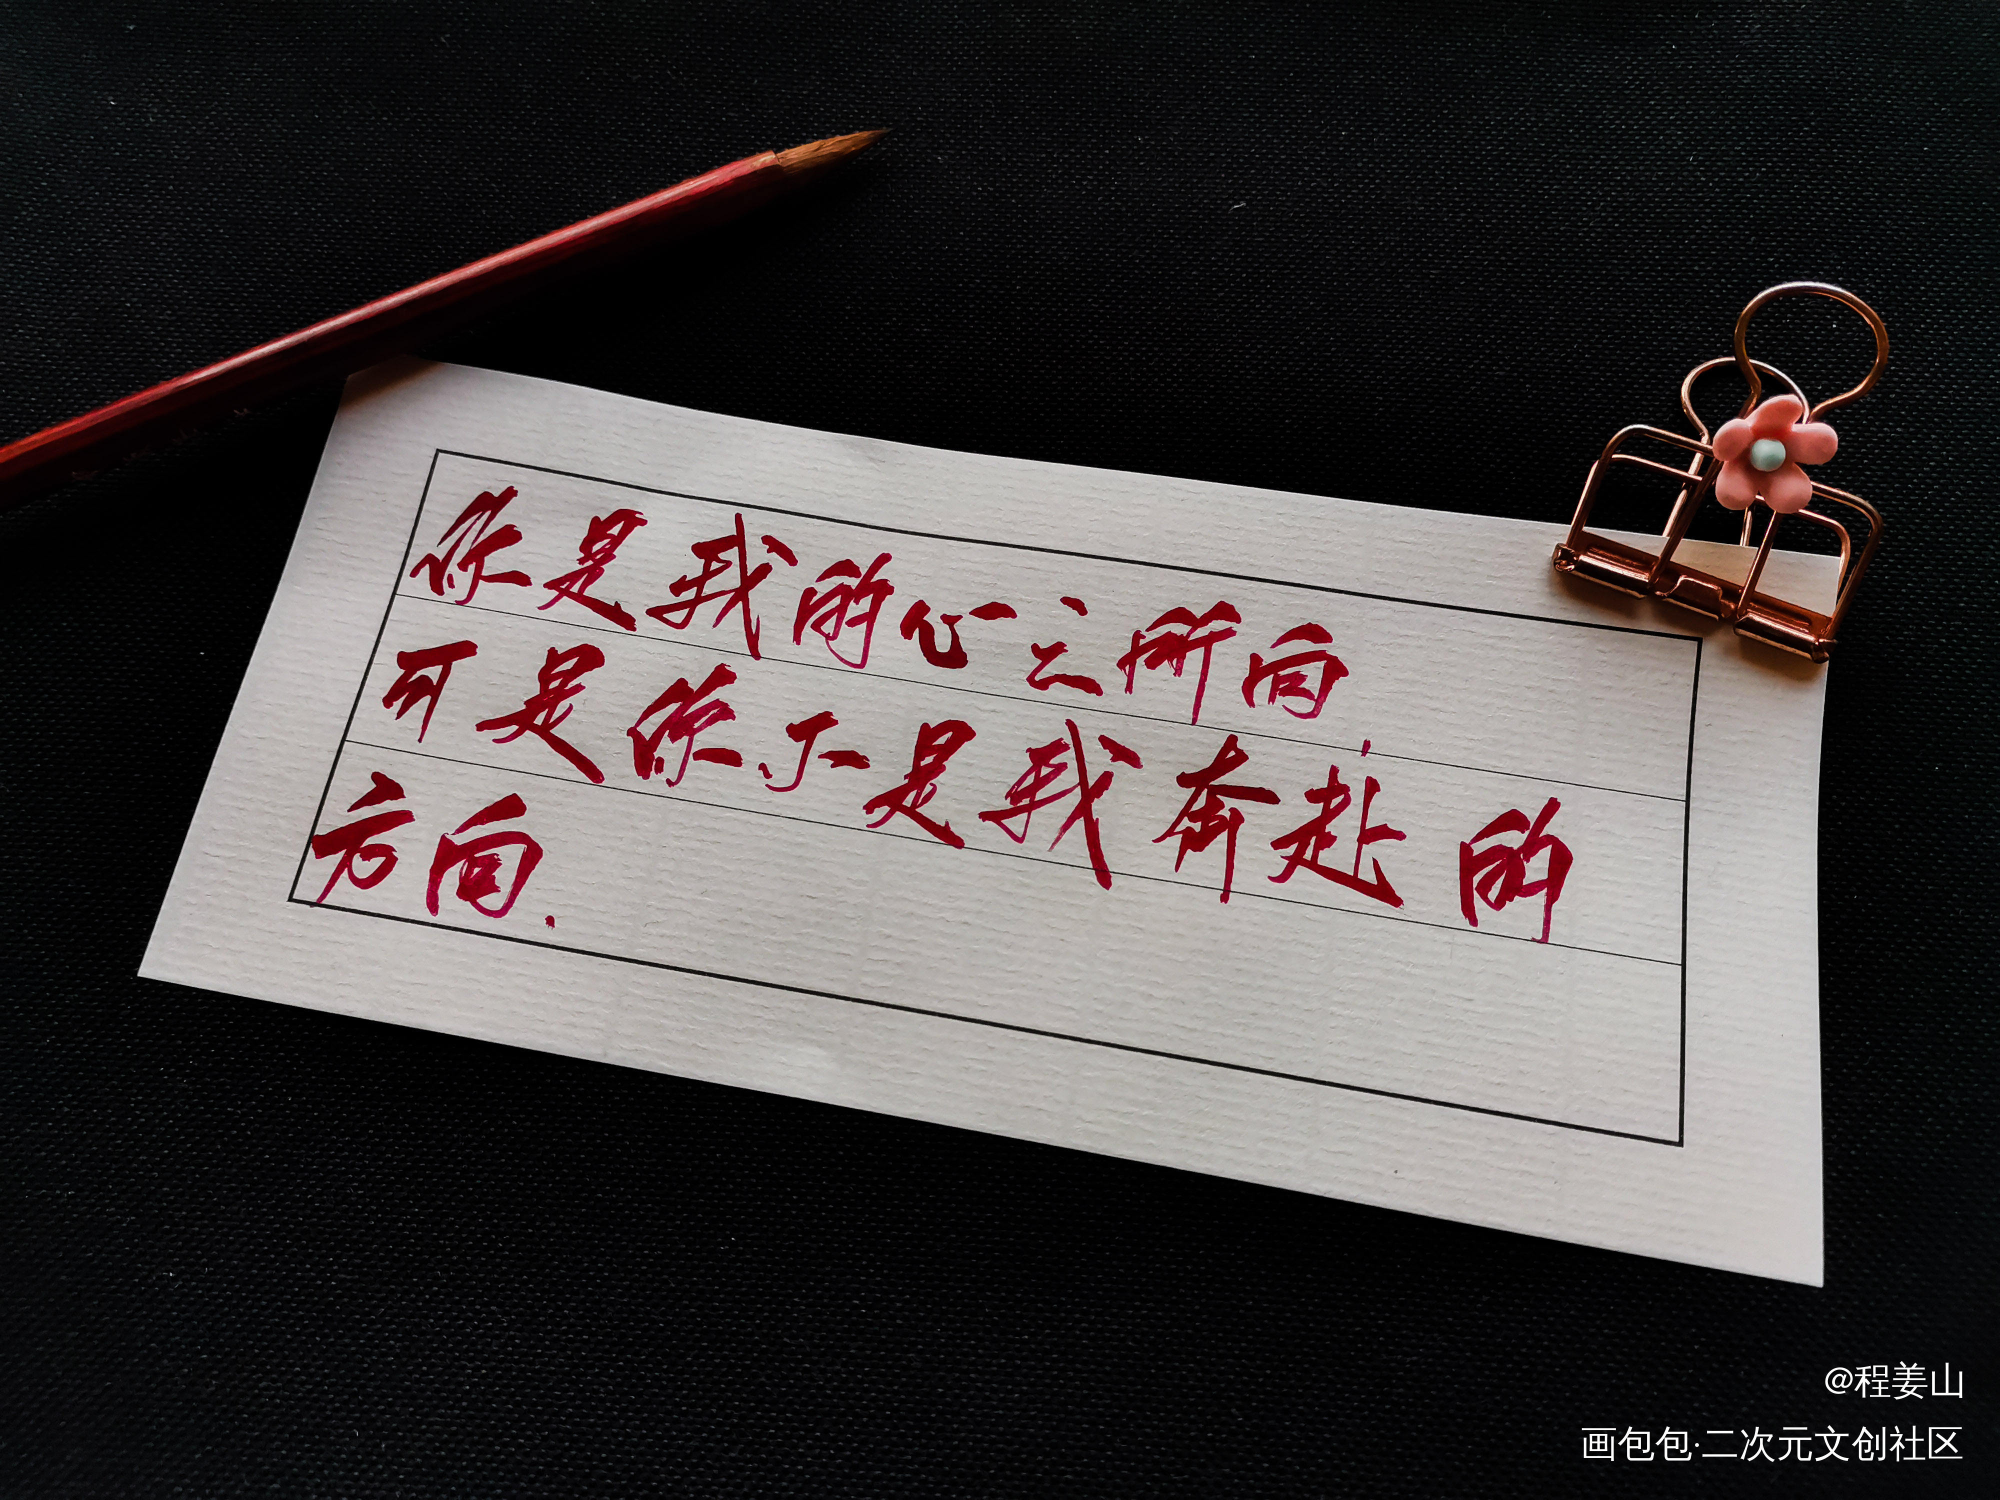 你是我的心之所向,
可是你不是我奔赴的
方向.
@程姜山
画包包·二次元文创社区